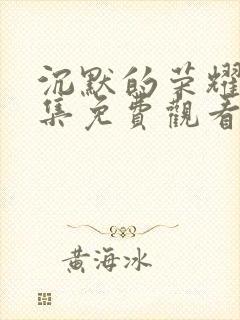 沉默的荣耀
集免費觀看
黄海冰